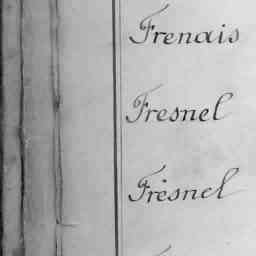 Frenais
Fresnel
Frèsnel